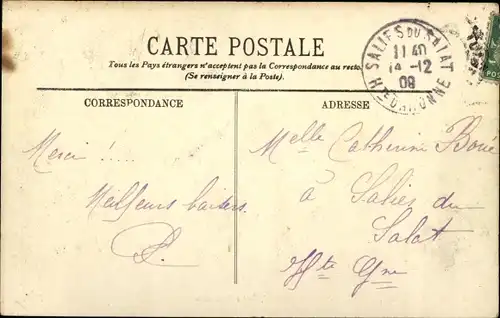 CARTE POSTALE
Tous les Pays étrangers n'acceptent pas la Correspondance au recto.
(Se renseigner à la Poste).
SALIES DU SALAT
11 40
14 -12
08
Hte GARONNE
CORRESPONDANCE
ADRESSE
Merci !....
Meilleurs baisers
Melle Catherine
à Salies du
Salat
Hte Gne